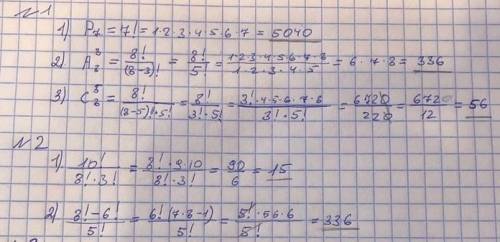 №1
1) P₇ = 7! = 1·2·3·4·5·6·7 = 5040
2) A₈³ = 8!/(8-3)! = 8!/5! = 1·2·3·4·5·6·7·8/1·2·3·4·5 = 6·7·8 = 336
3) C₈⁵ = 8!/(8-5)!·5! = 8!/3!·5! = 3!·4·5·6·7·8/3!·5! = 6720/220 = 6720/12 = 56
№2
1) 10!/8!·3! = 8!·9·10/8!·3! = 90/6 = 15
2) 8!-6!/5! = 6!(7·8-1)/5! = 5!·56·6/5! = 336